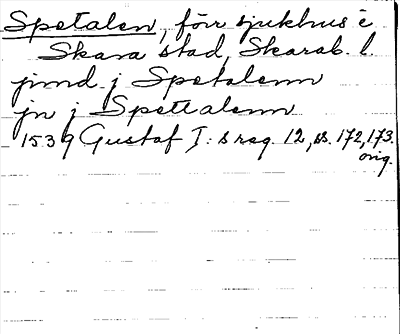 Spetalen, förr sjukhus i
Skara stad, Skarab. l.
jmd. j Spetalenn
jn j Spettalenn
1539 Gustaf I:s reg. 12, ss. 172, 173.
orig.